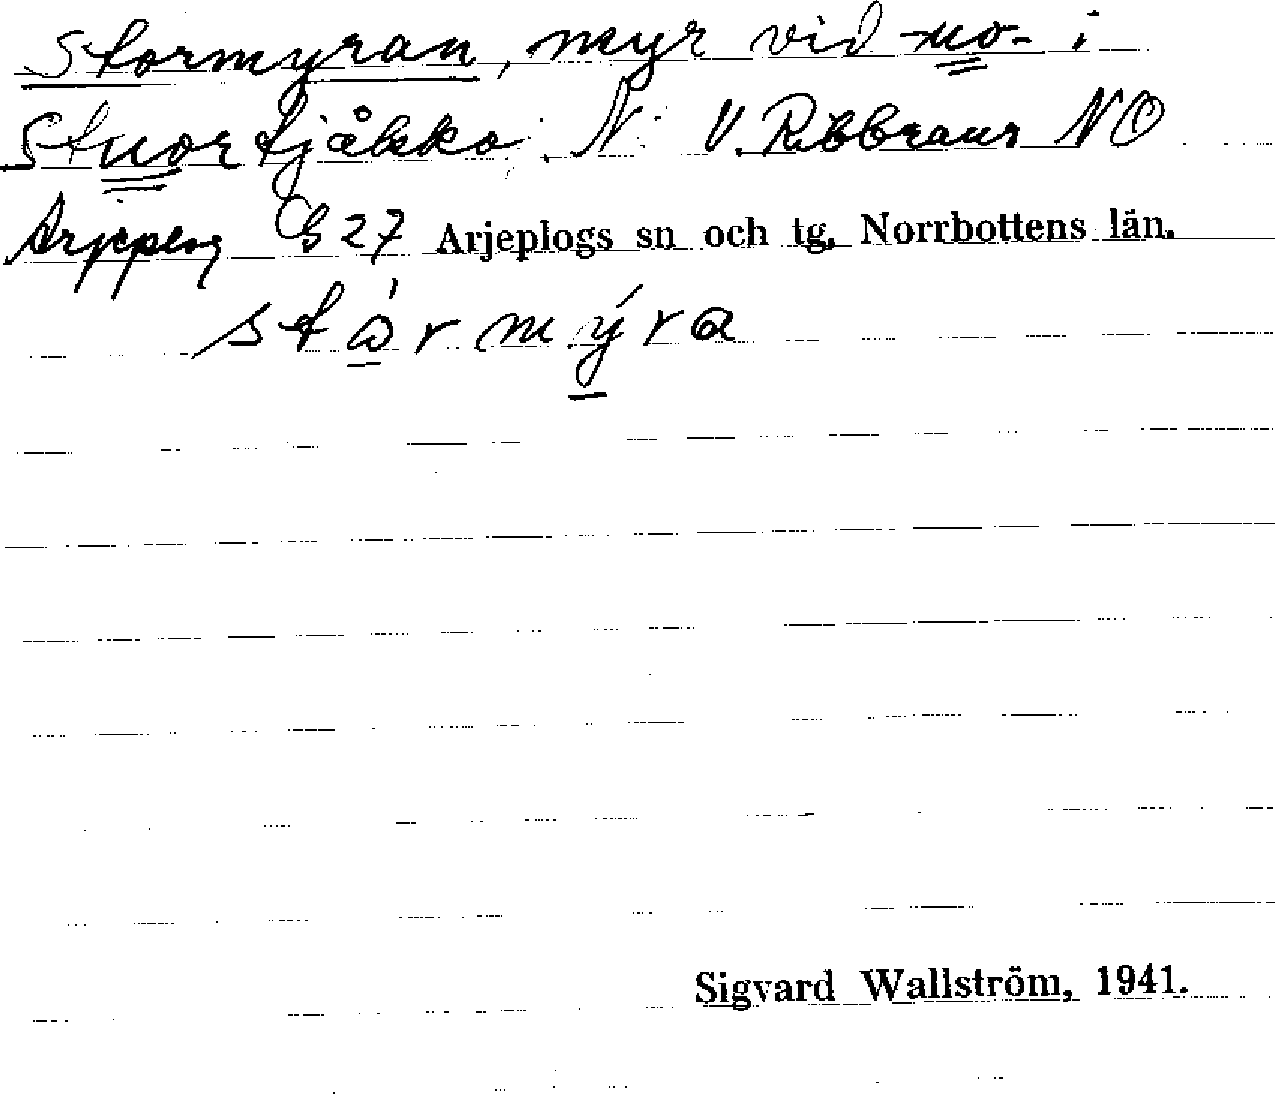 Stormyran, myr vid -uo- i
Stuortjåkko N. V. Ribbraur NO
Arjeplog G 27 Arjeplogs sn och tg, Norrbottens län.
stårmýra
Sigvard Wallström, 1941.